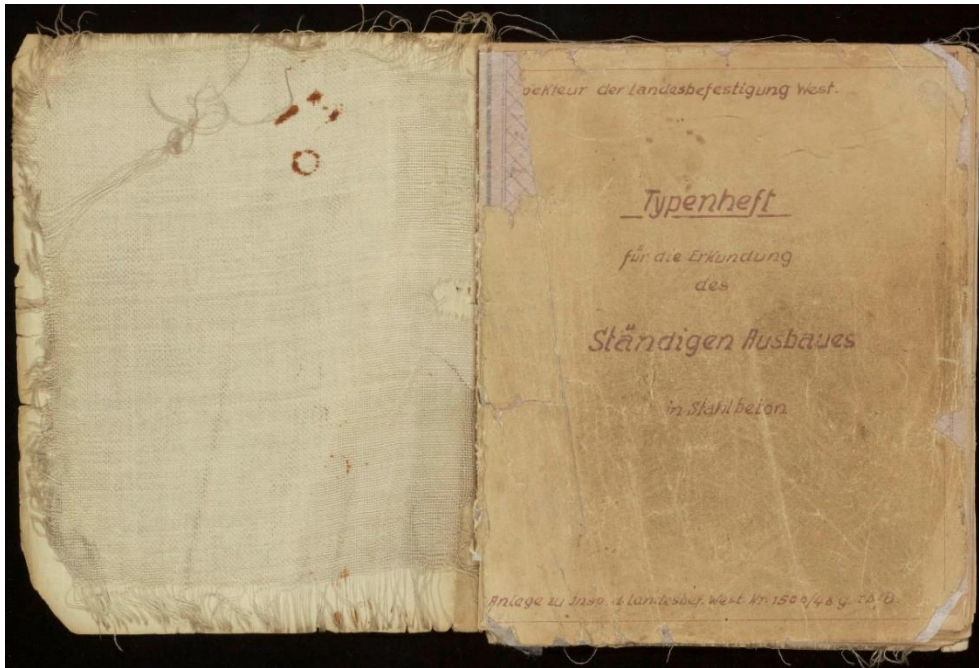 pekteur der Landesbefestigung West.
Typenheft
für die Erkundung
des
Ständigen Ausbaues
in Stahlbeton
Anlage zu Insp. d. Landesbef. West Nr. 1500/43 g.